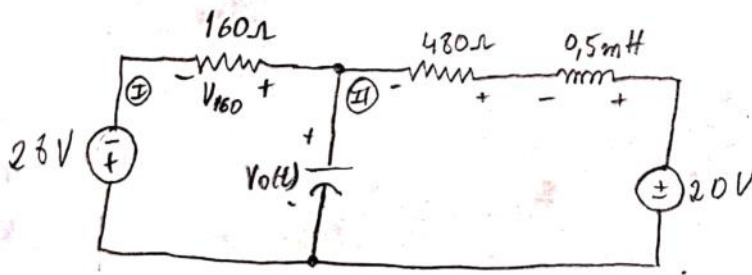 160Ω
480Ω
0,5mH
I
- V160 +
II
- +
- +
28V
- +
+
V0(t)
-
± 20V